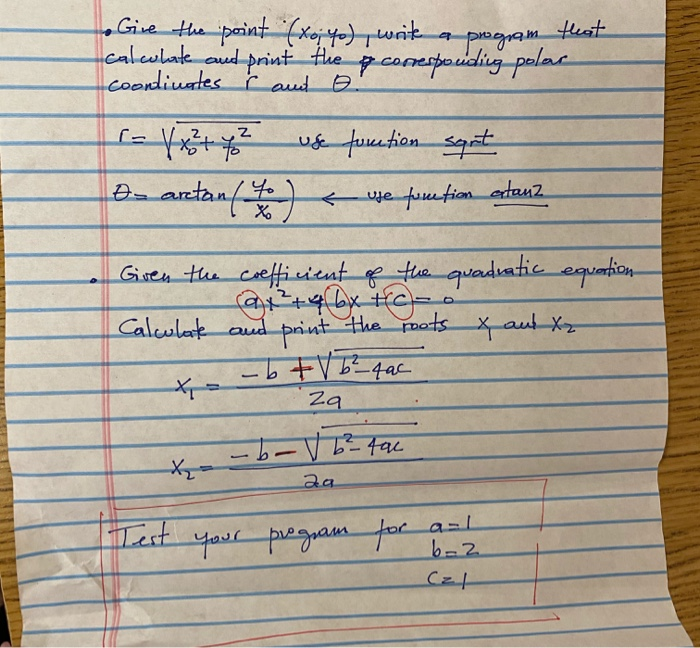 • Give the point (x₀, y₀), write a program that
calculate and print the corresponding polar
coordinates r and θ.
r = √(x₀² + y₀²) use function sqrt
θ = arctan(y₀/x₀) ← use function atan2
• Given the coefficient of the quadratic equation
ax² + bx + c = 0
Calculate and print the roots x₁ and x₂
x₁ = (-b + √(b²-4ac))/2a
x₂ = (-b - √(b²-4ac))/2a
Test your program for a=1
b=2
c=1